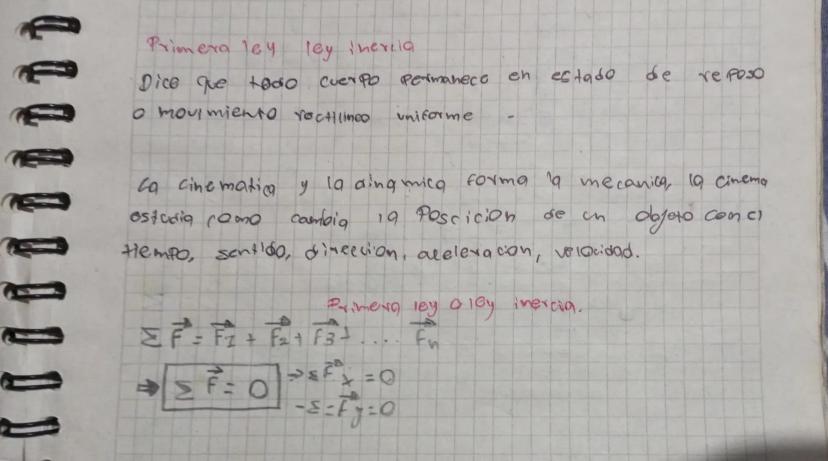 Primera ley ley inercia
Dice que todo cuerpo permanece en estado de reposo
o movimiento rectilineo uniforme -
La cinematica y la dinamica forma la mecanica, la cinema
estudia como cambia la Poscicion de un objeto con el
tiempo, sentido, direccion, aceleracion, velocidad.
Primera ley o ley inercia.
Σ F⃗ = F⃗1 + F⃗2 + F⃗3 + .... F⃗n
⇒ Σ F⃗ = 0 → Σ F⃗x = 0
-Σ = F⃗y = 0